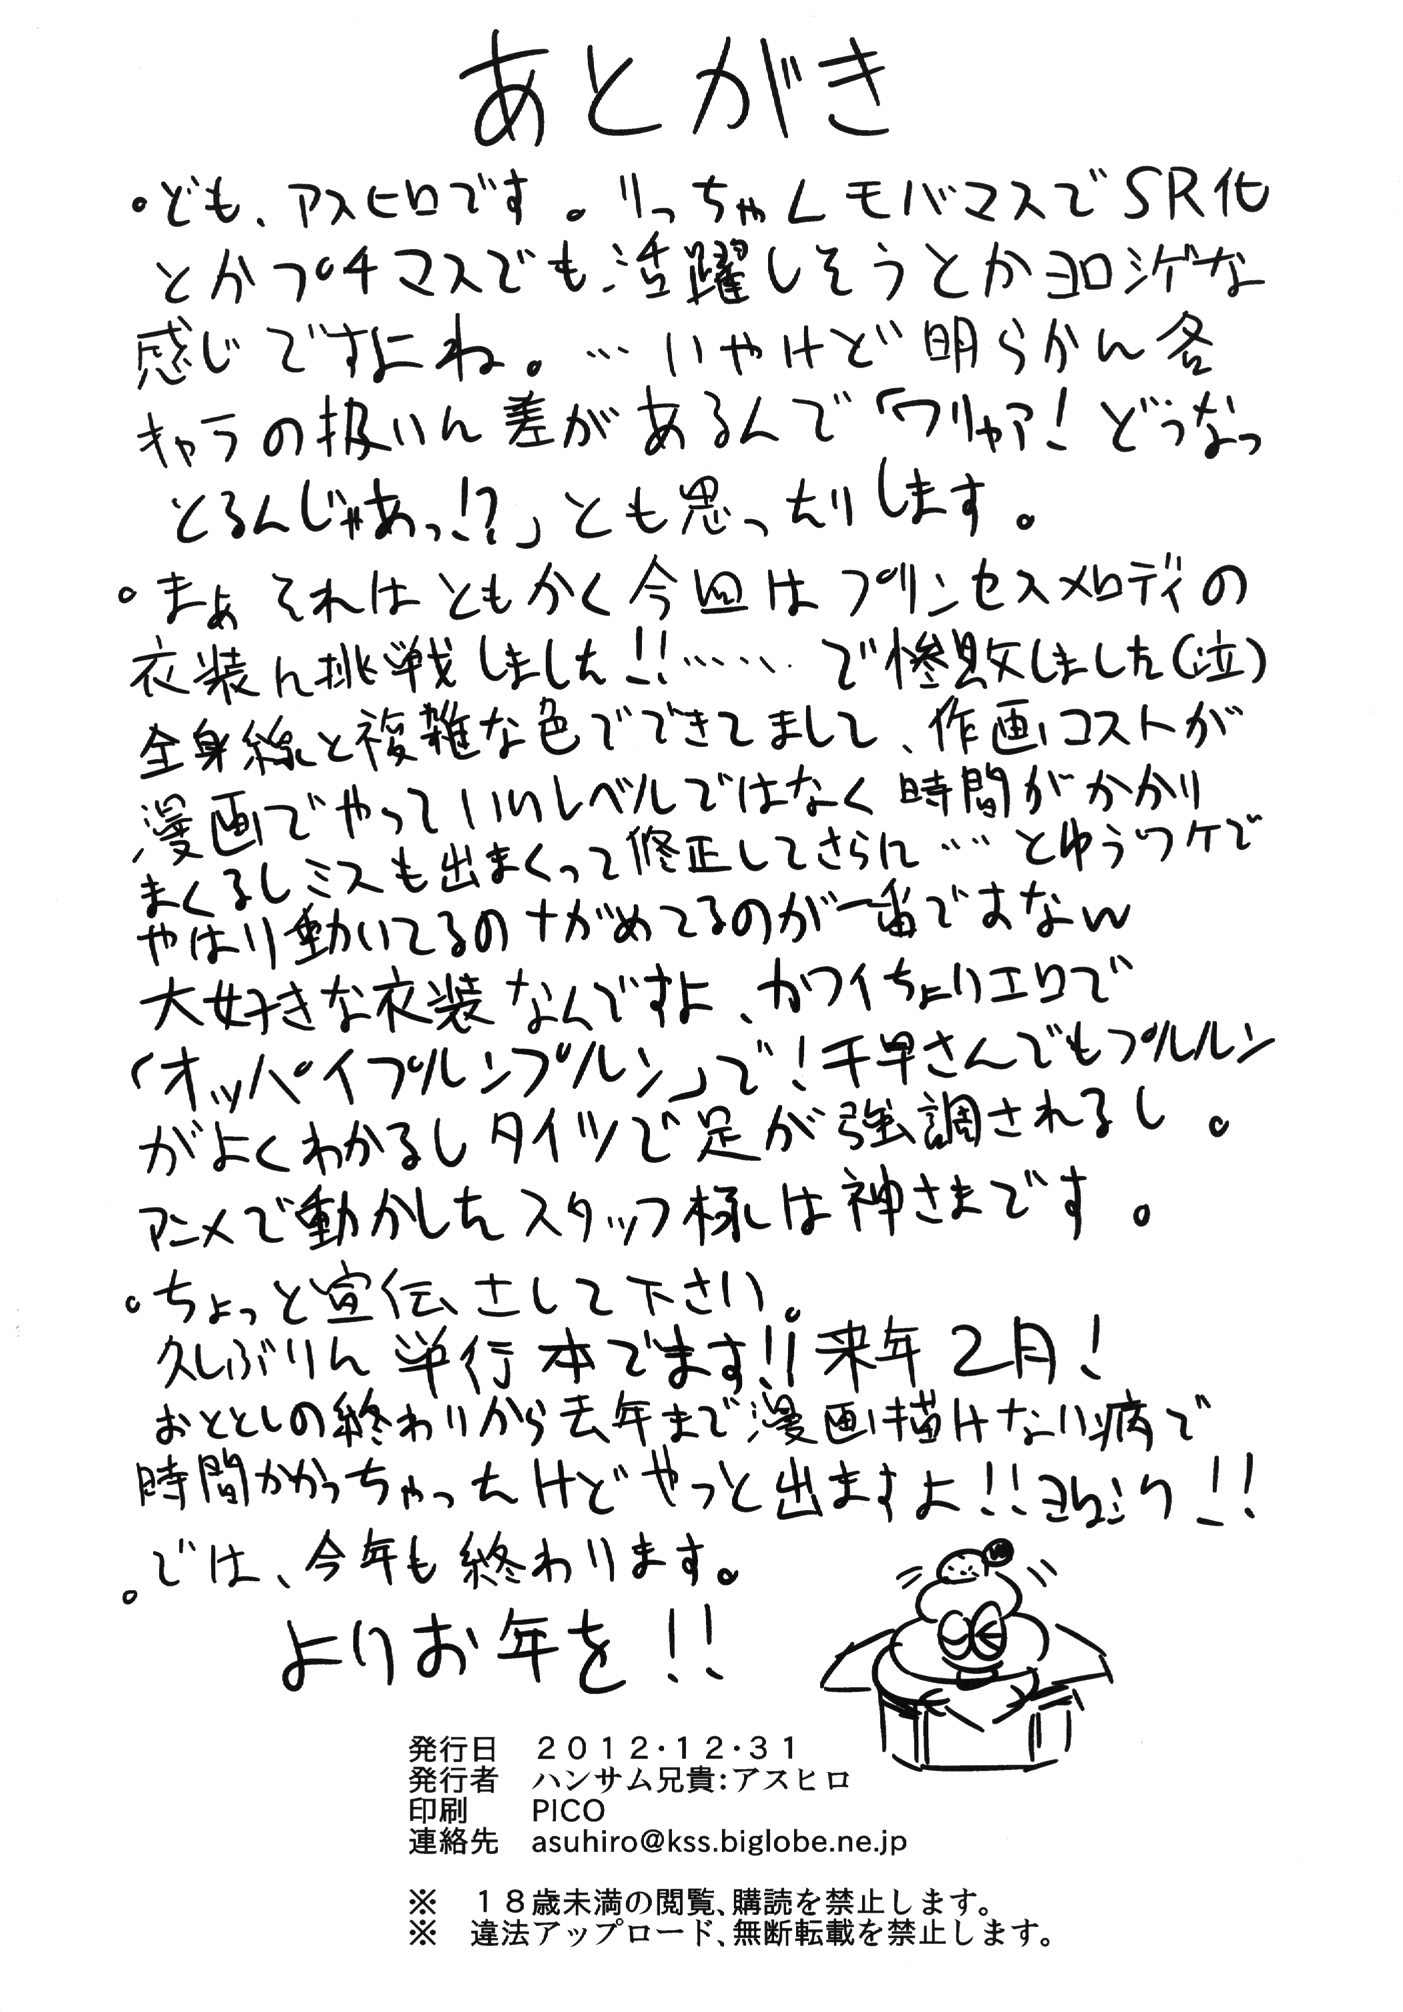 あとがき
。ども、アスヒロです。りっちゃんモバマスでSR化
とかプチマスでも活躍しそうとかヨロシゲな
感じですよね。…いやけど明らかに各
キャラの扱いに差があるんで「ワリャア!どうなっ
とるんじゃあっ!?」とも思ったりします。
。まぁそれはともかく今回はプリンセスメロディの
衣装に挑戦しました!!……で惨敗しました(泣)
全身線と複雑な色でできてまして、作画コストが
漫画でやっていいレベルではなく時間がかかり
まくるしミスも出まくって修正してさらに…とゆうワケで
やはり動いてるのながめてるのが一番ですなw
大好きな衣装なんですよ、カワイちょりエロで
「オッパイプルンプルン」で!千早さんでもプルルン
がよくわかるしタイツで足が強調されるし。
アニメで動かしたスタッフ様は神さまです。
。ちょっと宣伝さして下さい。
久しぶりに単行本でます!!来年2月!
おととしの終わりから去年まで漫画描けない病で
時間かかっちゃったけどやっと出ますよ!!ヨロシク!!
。では、今年も終わります。
よりお年を!!
発行日 2012・12・31
発行者 ハンサム兄貴:アスヒロ
印刷 PICO
連絡先 asuhiro@kss.biglobe.ne.jp
※ 18歳未満の閲覧、購読を禁止します。
※ 違法アップロード、無断転載を禁止します。